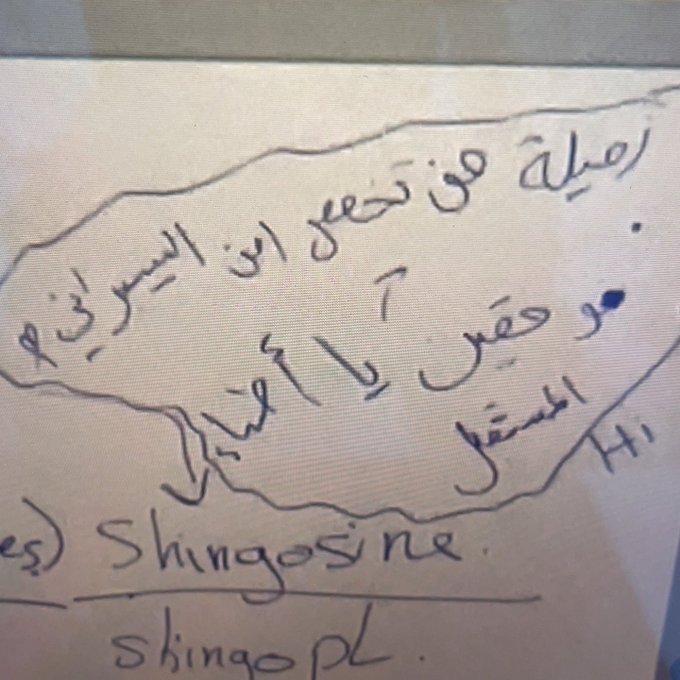 زميلة من تخصص امن السيبراني
موفقين يا أطباء
المستقبل
Hi
es) Shingosine.
shingo pL.